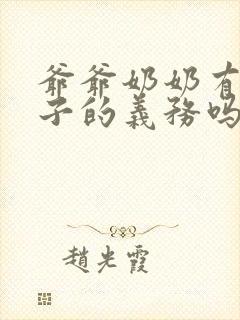 爺爺奶奶有
子的義務嗎
趙光霞